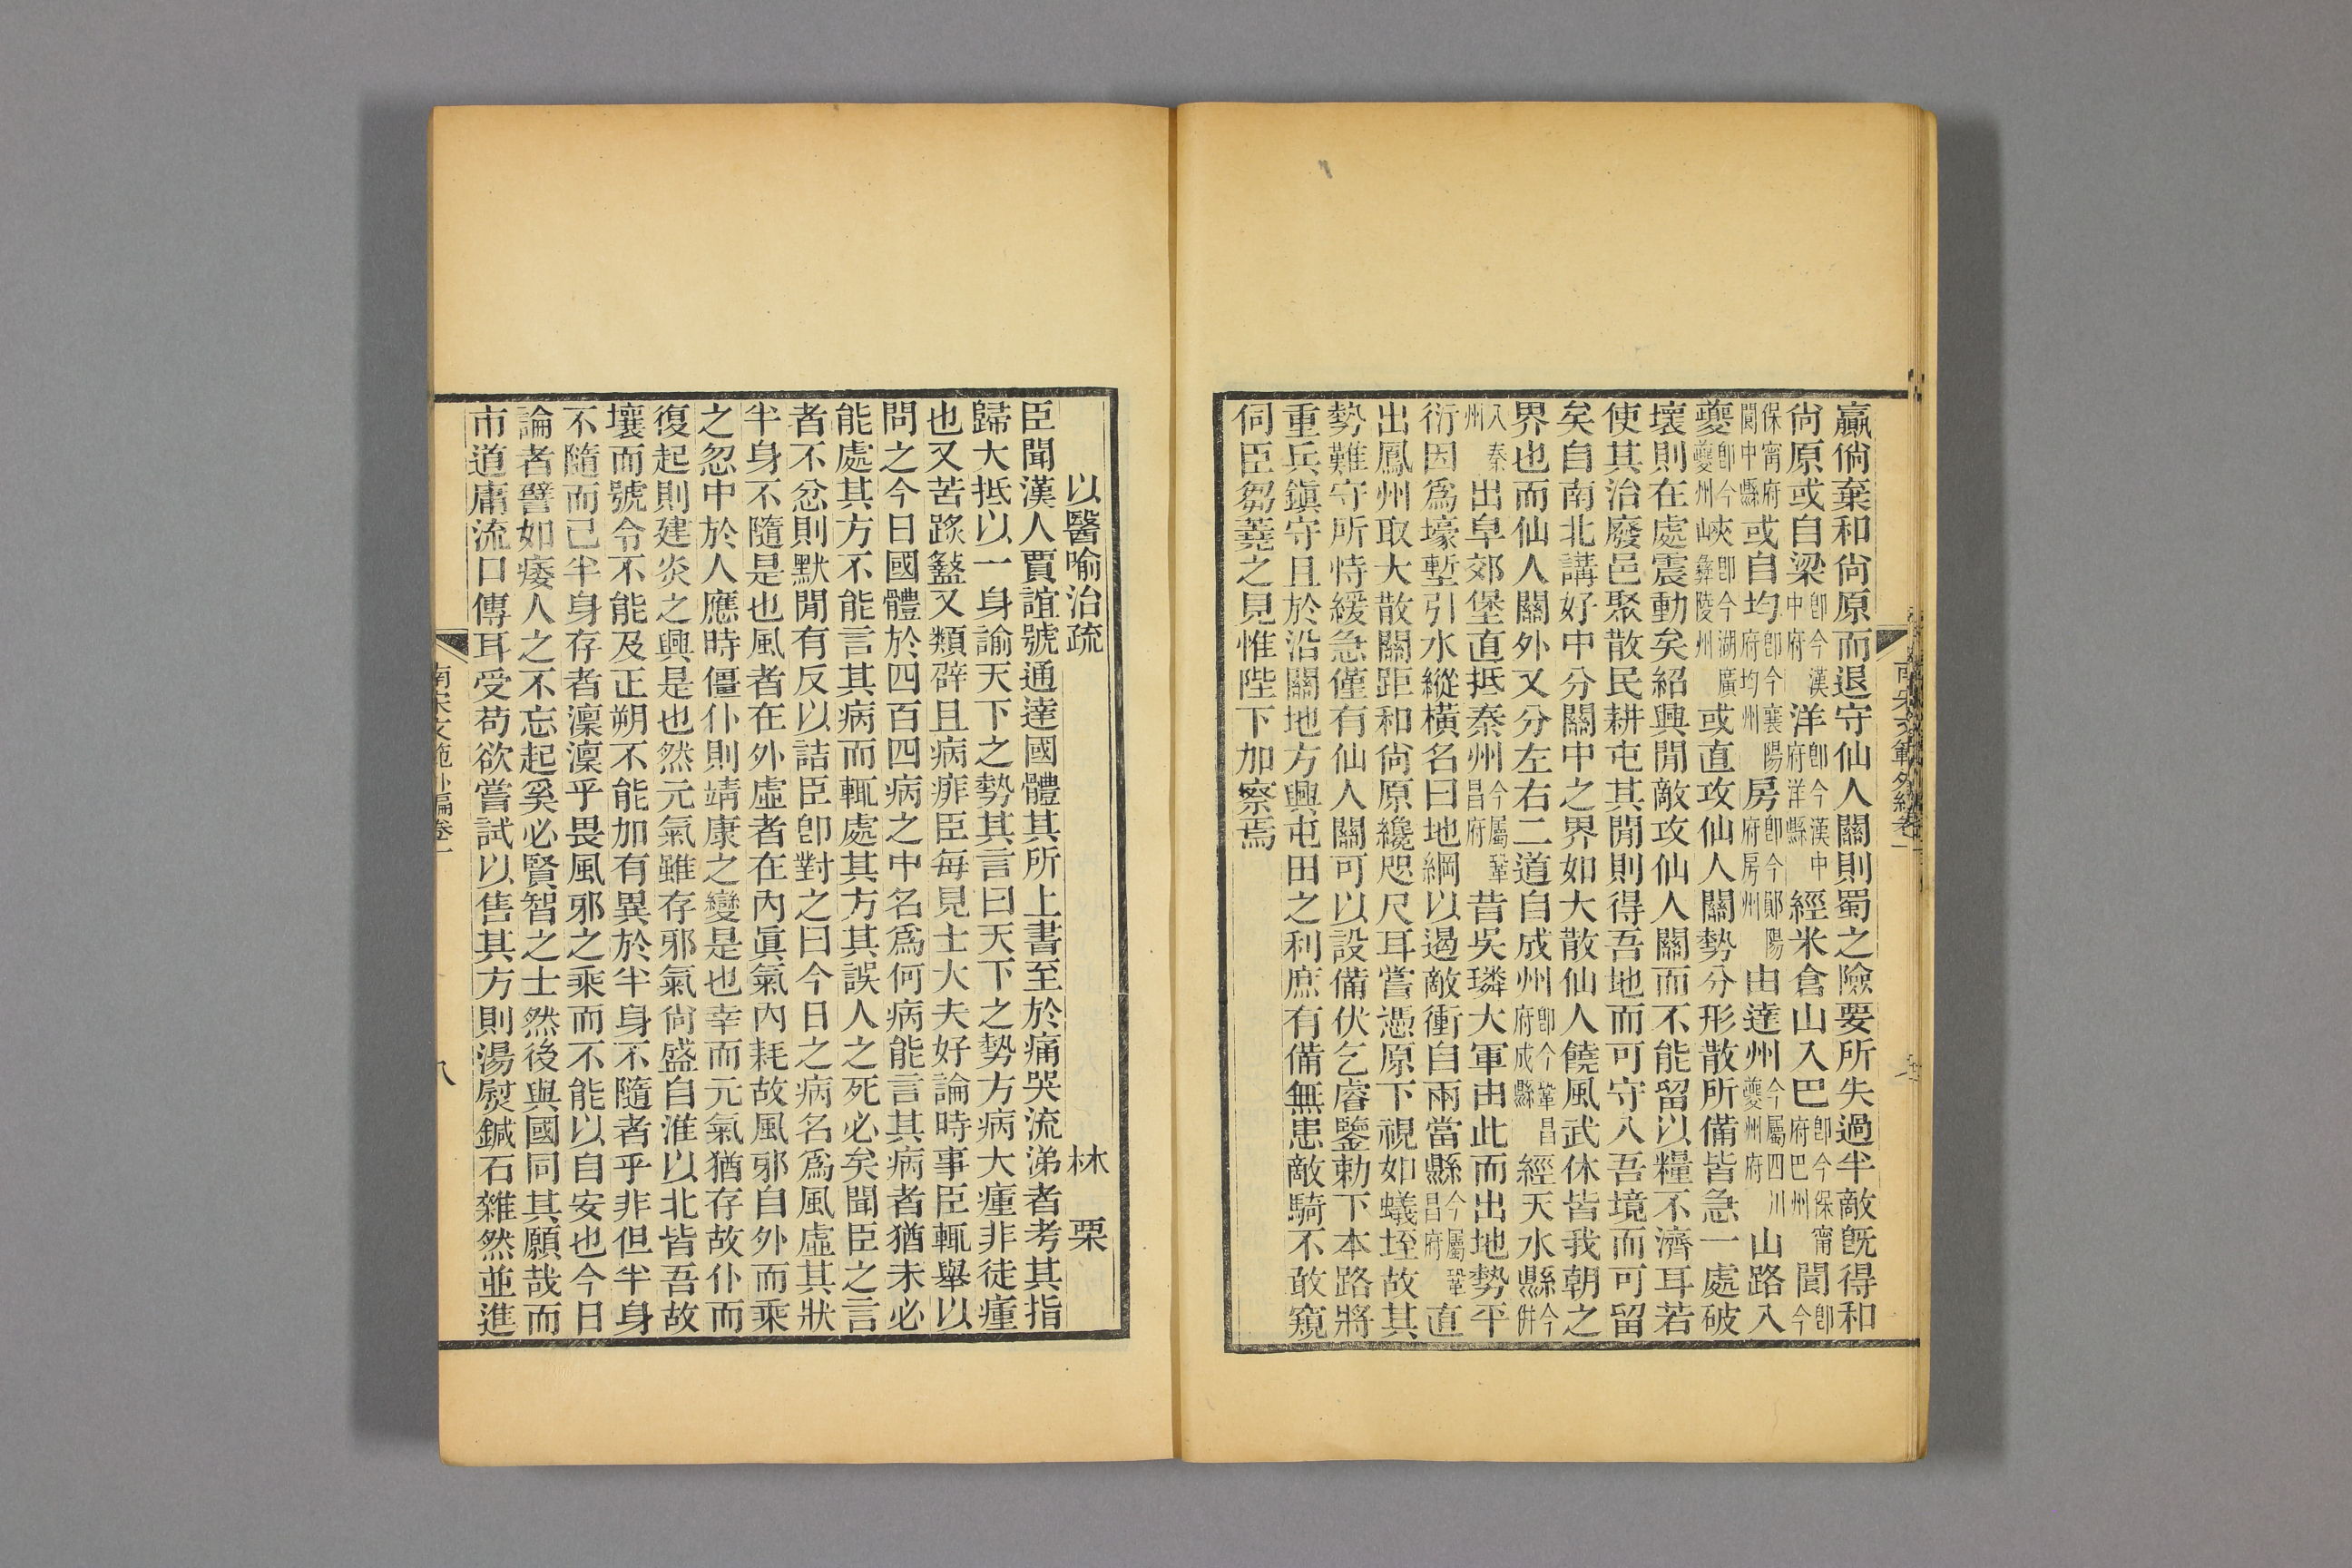 羸倘棄和尙原而退守仙人關則蜀之險要所失過半敵旣得和
尙原或自梁卽今漢中府洋卽今漢中府洋縣經米倉山入巴卽今保甯府巴州閬卽今
保甯府閬中縣或自均卽今襄陽府均州房卽今鄖陽府房州由達州今屬四川夔州府山路入
夔卽今夔州峽卽今湖廣山彝陵州或直攻仙人關勢分形散所備皆急一處破
壞則在處震動矣紹興閒敵攻仙人關而不能留以糧不濟耳若
使其治廢邑聚散民耕屯其閒則得吾地而可守入吾境而可留
矣自南北講好中分關中之界如大散仙人饒風武休皆我朝之
界也而仙人關外又分左右二道自成州卽今鞏昌府成縣經天水縣今倂
入秦州出皁郊堡直抵秦州今屬鞏昌府昔吳璘大軍由此而出地勢平
衍因爲壕塹引水縱橫名曰地綱以遏敵衝自兩當縣今屬鞏昌府直
出鳳州取大散關距和尙原纔咫尺耳嘗憑原下視如蟻垤故其
勢難守所恃緩急僅有仙人關可以設備伏乞睿鑒勅下本路將
重兵鎭守且於沿關地方興屯田之利庶有備無患敵騎不敢窺
伺臣芻蕘之見惟陛下加察焉
以醫喻治疏 林 栗
臣聞漢人賈誼號通達國體其所上書至於痛哭流涕者考其指
歸大抵以一身諭天下之勢其言曰天下之勢方病大瘇非徒瘇
也又苦蹠盭又類辟且病痱臣每見士大夫好論時事臣輒舉以
問之今日國體於四百四病之中名爲何病能言其病者猶未必
能處其方不能言其病而輒處其方其誤人之死必矣聞臣之言
者不忿則默閒有反以詰臣卽對之曰今日之病名爲風虛其狀
半身不隨是也風者在外虛者在內眞氣內耗故風邪自外而乘
之忽中於人應時僵仆則靖康之變是也幸而元氣猶存故仆而
復起則建炎之興是也然元氣雖存邪氣尙盛自淮以北皆吾故
壤而號令不能及正朔不能加有異於半身不隨者乎非但半身
不隨而已半身存者凜凜乎畏風邪之乘而不能以自安也今日
論者譬如痿人之不忘起奚必賢智之士然後與國同其願哉而
市道庸流口傳耳受苟欲嘗試以售其方則湯熨鍼石雜然並進
南宋文範外編卷一
八